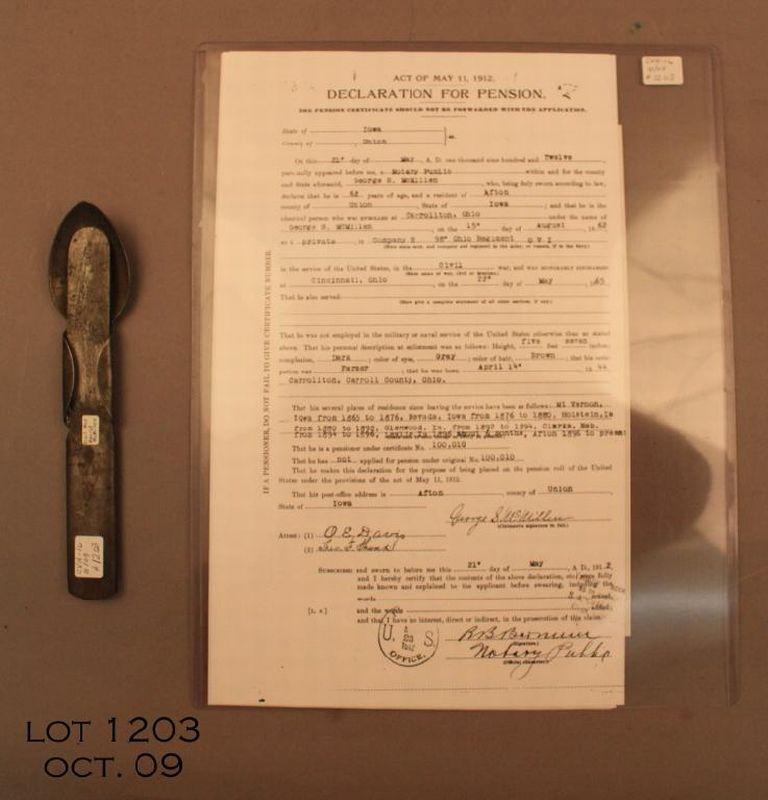 ACT OF MAY 11, 1912.
DECLARATION FOR PENSION.
THE PENSION CERTIFICATE SHOULD NOT BE FORWARDED WITH THE APPLICATION.
State of Iowa
County of Union ss.
On this 21" day of May, A. D. one thousand nine hundred and Twelve
personally appeared before me, a Notary Public within and for the county
and State aforesaid, George S. McMillen who, being duly sworn according to law,
declares that he is 68 years of age, and a resident of Afton
county of Union, State of Iowa; and that he is the
identical person who was ENROLLED at Carrollton, Ohio under the name of
George S. McMillen, on the 15" day of August, 1862
as a private in Company 98" Ohio Regiment O V I
in the service of the United States, in the Civil war, and was HONORABLY DISCHARGED
at Cincinnati, Ohio, on the day of May, 1865
That he also served
That he was not employed in the military or naval service of the United States otherwise than as stated
above. That his personal description at enlistment was as follows: Height, five feet seven inches;
complexion, Dark; color of eyes, Gray; color of hair, Brown; that his occu-
pation was Farmer; that he was born April 14" 1844
Carrollton, Carroll County, Ohio.
That his several places of residence since leaving the service have been as follows: Mt Vernon,
Iowa from 1865 to 1876, Nevada, Iowa from 1876 to 1880, Holstein, Ia
from 1880 to 1892, Glenwood, Ia. from 1892 to 1894, Clarks, Neb.
from 1894 to 1896, 6 months, Afton 1896 to present
That he is a pensioner under certificate No. 100,010
That he has not applied for pension under original No. 100,010
That he makes this declaration for the purpose of being placed on the pension roll of the United
States under the provisions of the act of May 11, 1912.
That his post-office address is Afton, county of Union
State of Iowa
George S. McMillen
(Claimant's signature in full.)
Attest: (1) O. E. Davis
(2)
SUBSCRIBED and sworn to before me this 21" day of May, A. D. 1912,
and I hereby certify that the contents of the above declaration, etc., were fully
made known and explained to the applicant before swearing, including the
words
[L. S.] and the words
and that I have no interest, direct or indirect, in the prosecution of this claim.
(Signature.)
Notary Public
(Official character.)
U. S.
OFFICE.
IF A PENSIONER, DO NOT FAIL TO GIVE CERTIFICATE NUMBER.
LOT 1203
OCT. 09